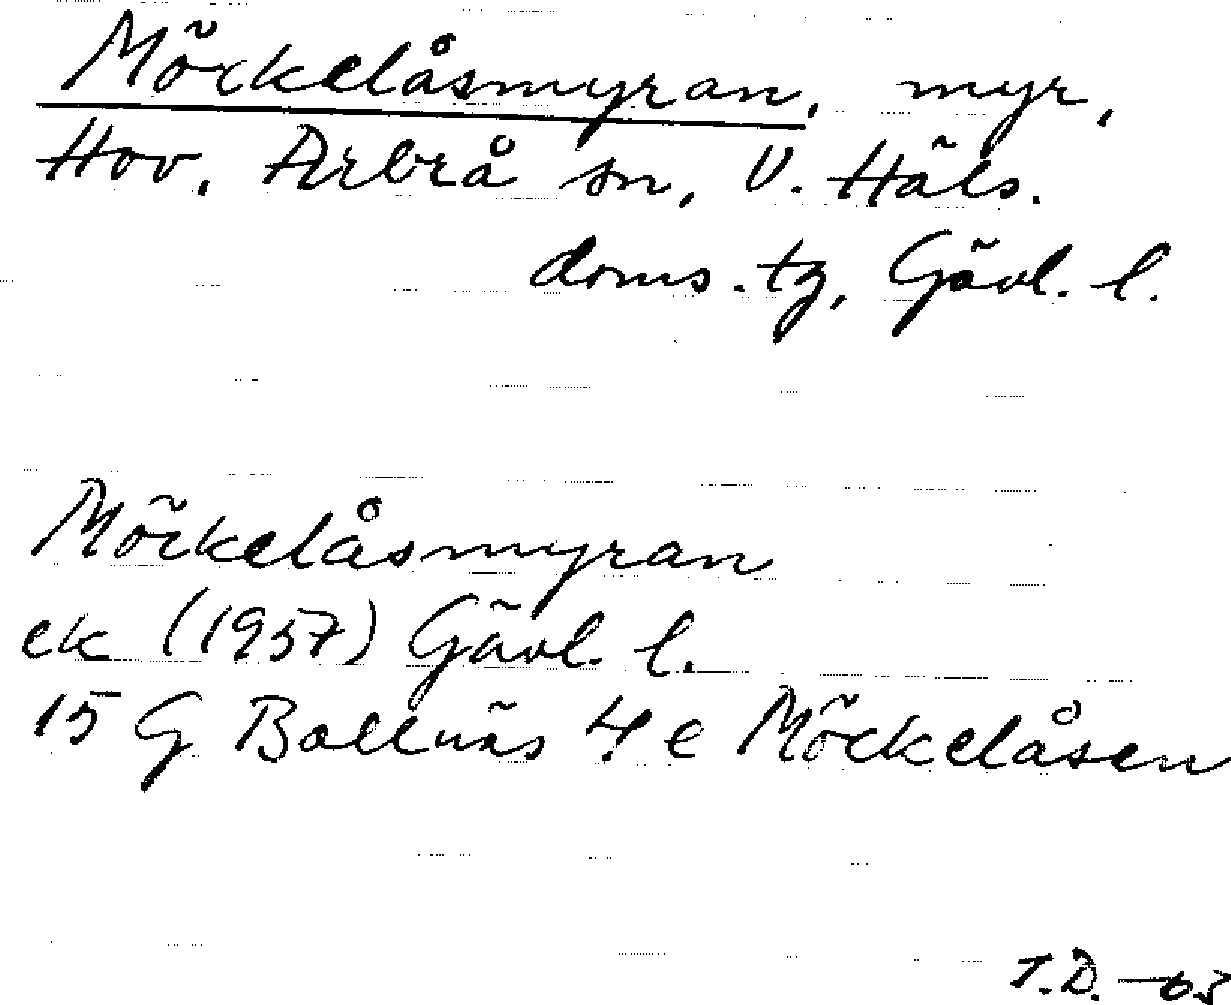 Möckelåsmyran, myr,
Hov, Arbrå sn, V. Häls.
doms. tg, Gävl. l.
Möckelåsmyran
ek (1957) Gävl. l.
15 G Bollnäs 4 e Möckelåsen
T.D. -63